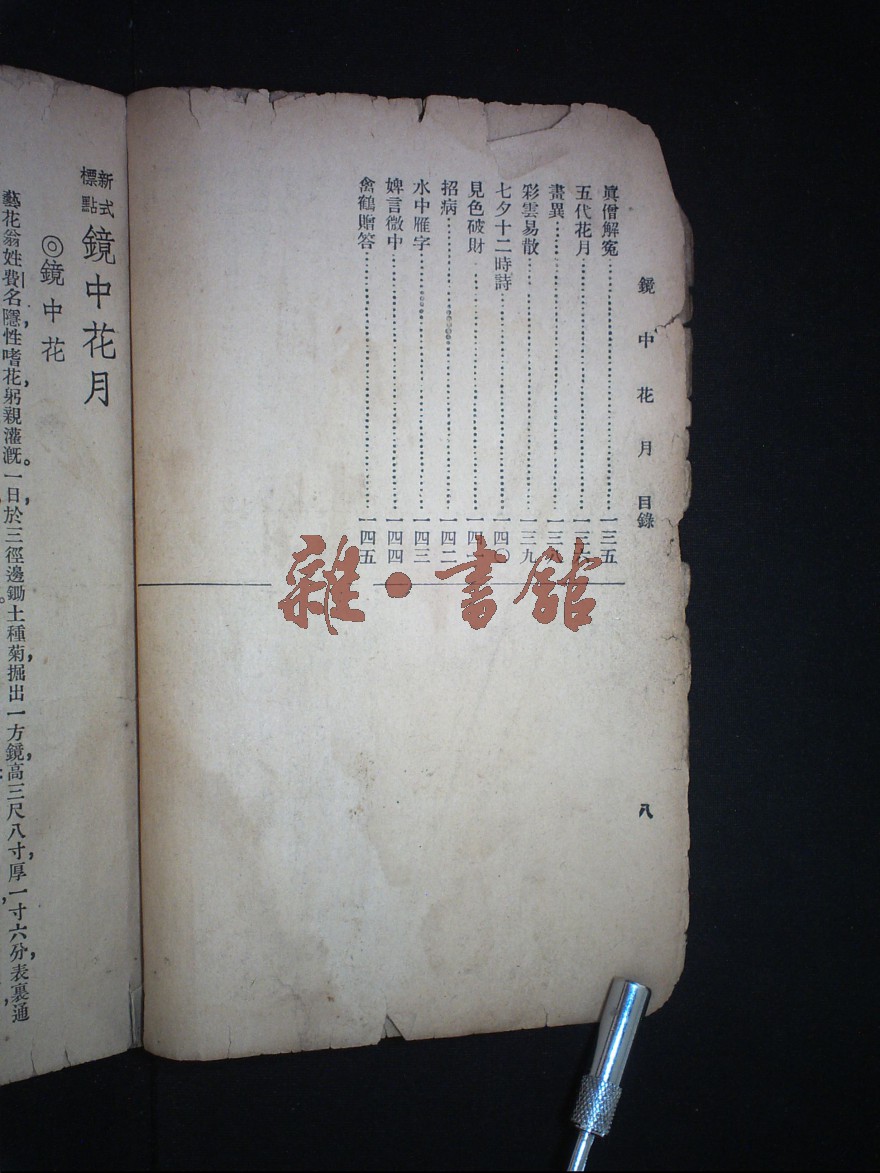 鏡中花月 目錄
八
眞僧解冤……一三五
五代花月……一三六
畫異……一三八
彩雲易散……一三九
七夕十二時詩……一四〇
見色破財……一四一
招病……一四二
水中雁字……一四三
婢言微中……一四四
禽鶴贈答……一四五
新式標點 鏡中花月
◎鏡中花
藝花翁姓費，名隱，性嗜花，躬親灌漑。一日，於三徑邊鋤土種菊，掘出一方鏡，高三尺八寸，厚一寸六分，表裏通
雜·書館